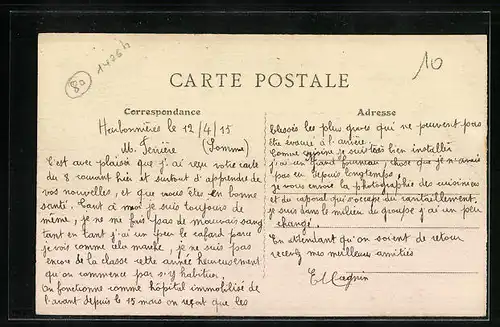 80
1425h
10
CARTE POSTALE
Correspondance
Adresse
Harbonnières le 12/4/15
(Somme)
M. Ferrière
C'est avec plaisir que j'ai reçu votre carte
du 8 courant hier et surtout d'apprendre de
vos nouvelles, et que vous êtes en bonne
santé. Tant à moi je suis toujours de
même, je ne me fais pas de mauvais sang
tant en tant j'ai un peu le cafard parce
je vois comme ela marche, je ne suis pas
encore de la classe cette année heureusement
qu'on commence par s'y habituer.
On fonctionne comme hôpital immobilisé de
l'avant depuis le 15 mars on reçoit que les
blessés les plus graves qui ne peuvent pas
être évacué à l'arrière.
Comme cuisine je suis très bien installé
j'ai un grand fourneau, chose que je n'avais
pas eu depuis longtemps,
Je vous envoie la photographie des cuisiniers
et du caporal qui s'occupe du ravitaillement,
je suis dans le milieu du groupe j'ai un peu
changé.
En attendant qu'on soient de retour
recevez mes meilleurs amitiés